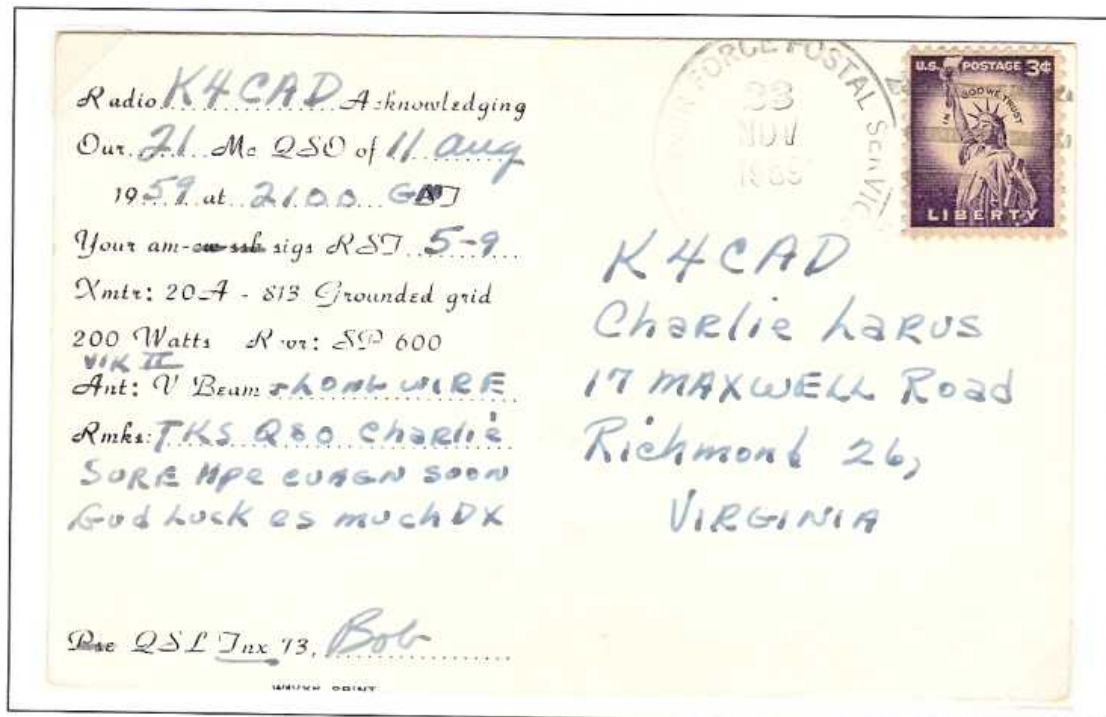 Radio K4CAD Acknowledging
Our 21 Mc QSO of 11 Aug
1959 at 2100 GMT
Your am-cw-ssb sigs RST 5-9
Xmtr: 20A - 813 Grounded grid
200 Watts Rcvr: SP 600
VIK II
Ant: V Beam + LONG WIRE
Rmks: TKS QSO Charlie
SURE Hpe CUAGN SOON
Gud Luck es much DX
Pse QSL Tnx 73, Bob
AIR FORCE POSTAL SERVICE
NOV
U.S. POSTAGE 3¢
IN GOD WE TRUST
LIBERTY
K4CAD
Charlie Larus
17 MAXWELL Road
Richmond 26,
VIRGINIA